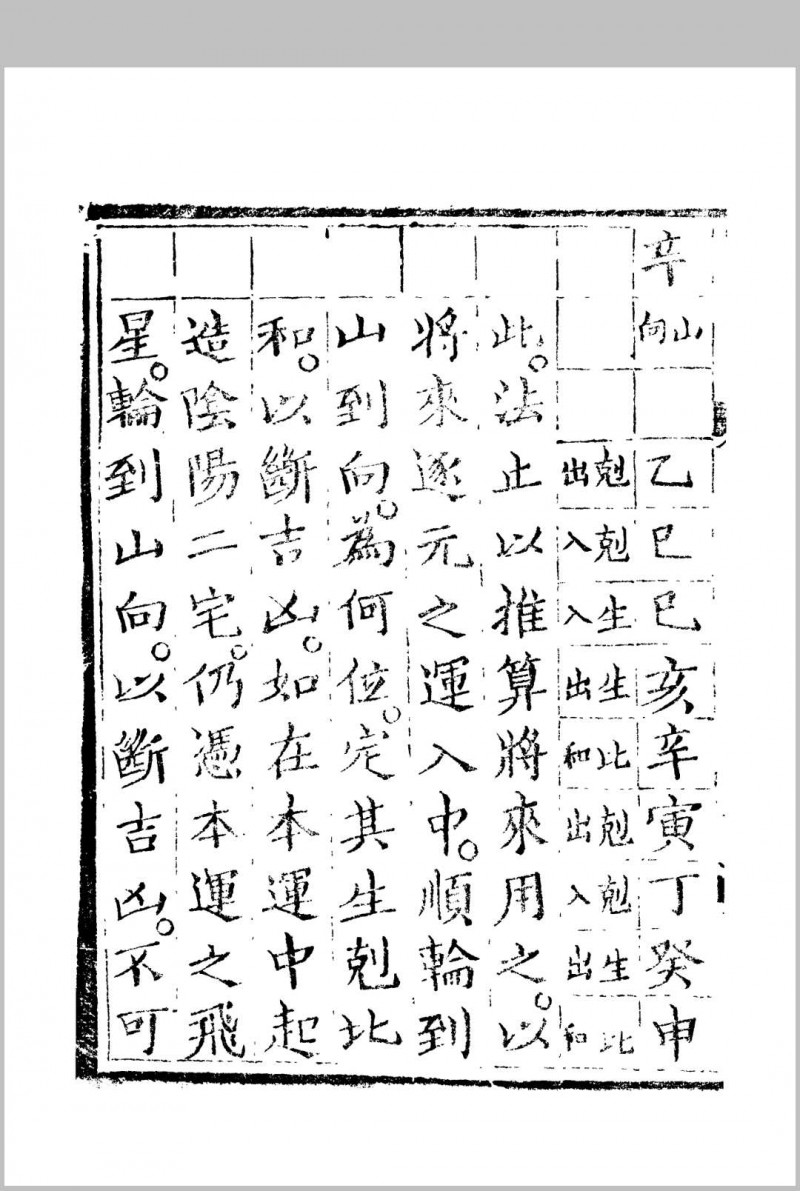 辛 山向 乙巳巳亥辛寅丁癸申
剋出 剋入 生入 生出 比和 剋出 剋入 生出 比和
此。法止以推算將來用之。以
將來逐元之運入中。順輪到
山到向。為何位。定其生剋比
和。以斷吉凶。如在本運中起
造陰陽二宅。仍憑本運之飛
星。輪到山向。以斷吉凶。不可